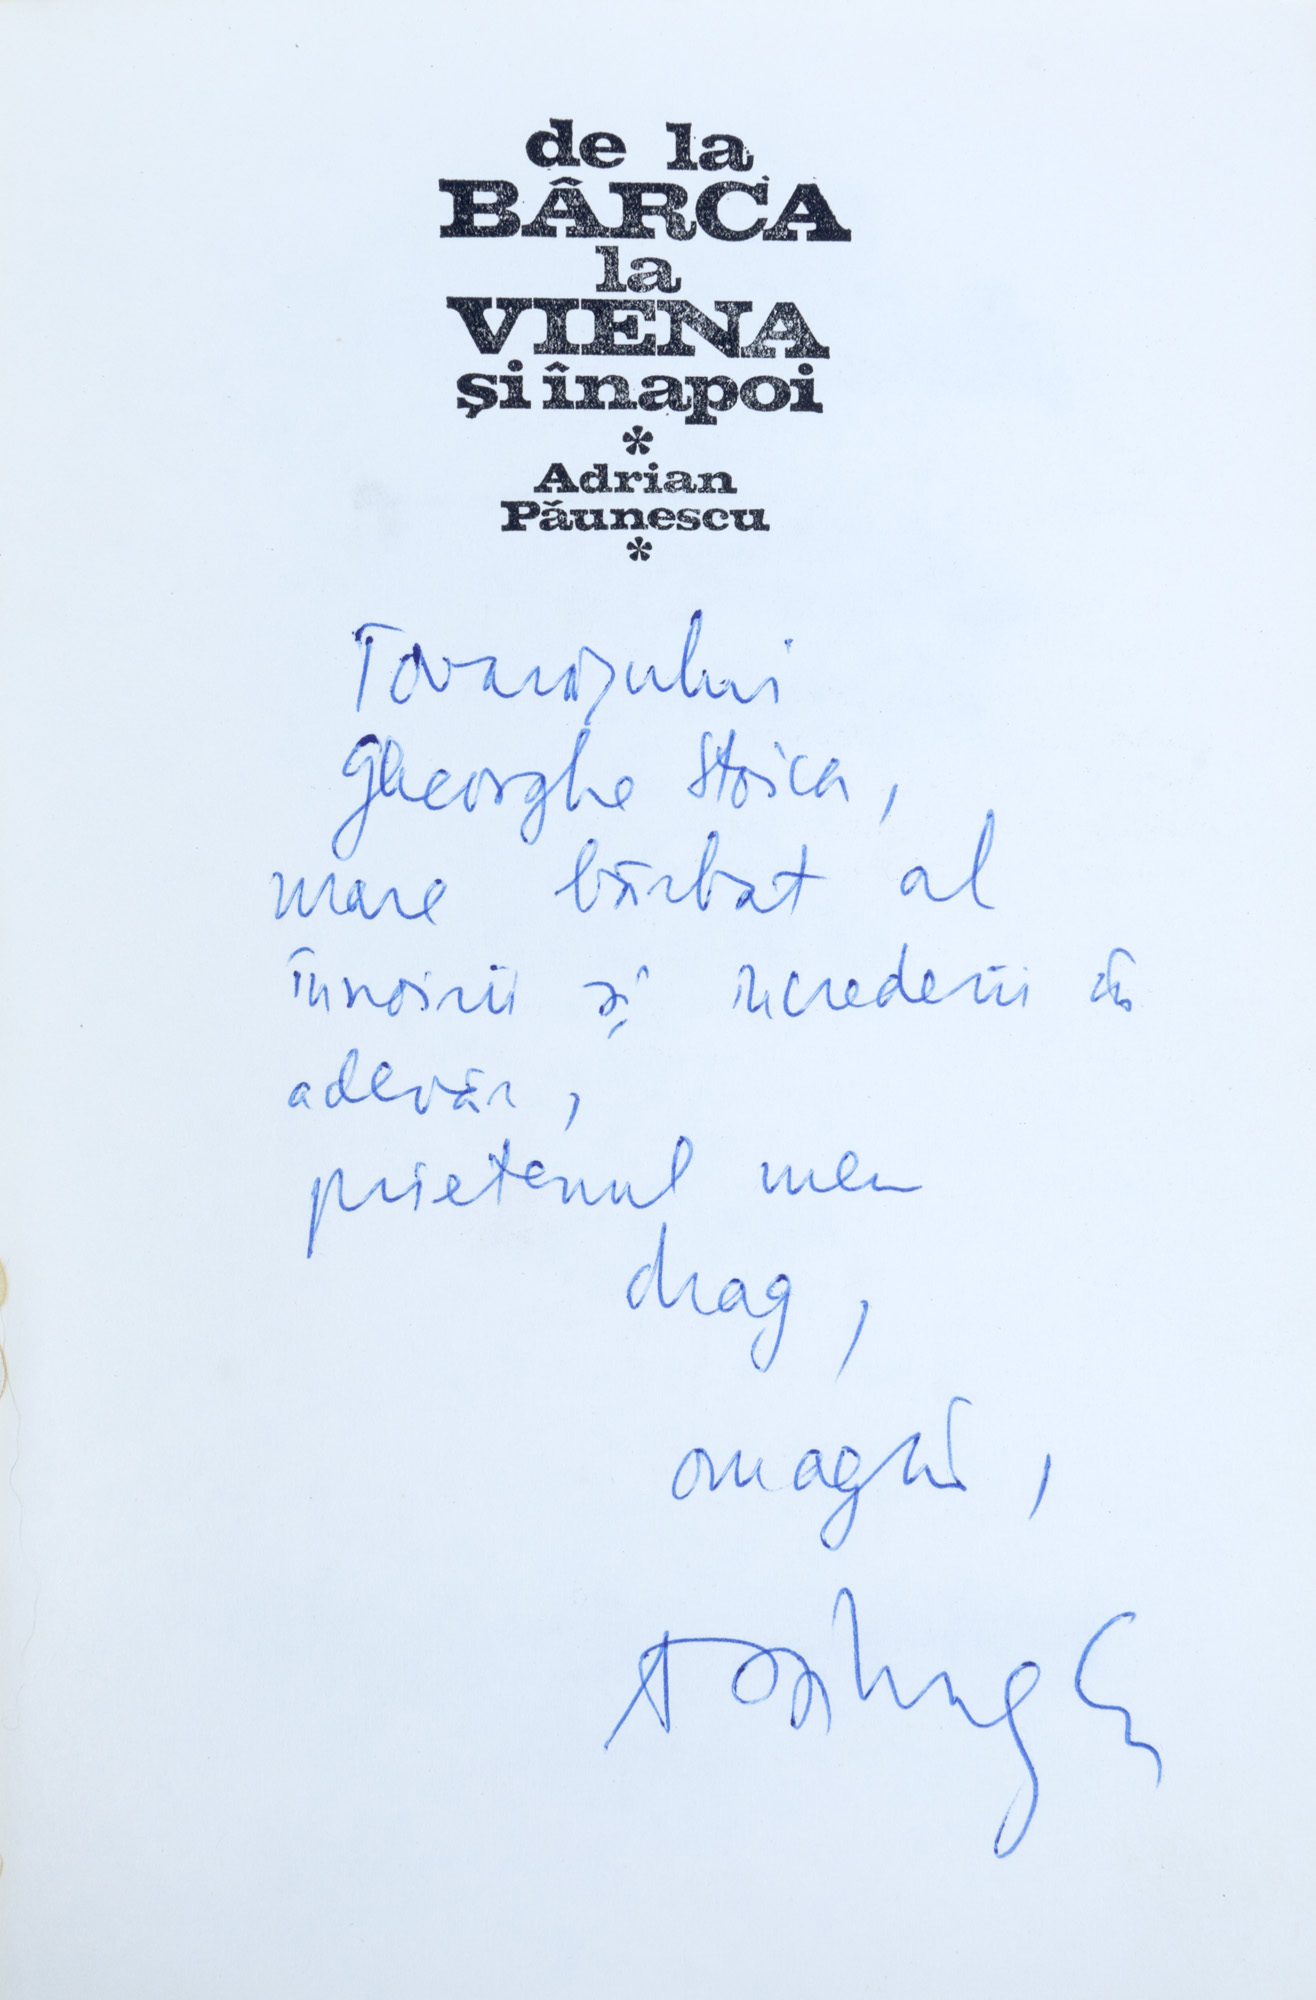 de la
BÂRCA
la
VIENA
și înapoi
*
Adrian
Păunescu
*
Tovarășului
Gheorghe Stoica,
mare bărbat al
înnoirii și încrederii în
adevăr,
prietenul meu
drag,
omagiu,